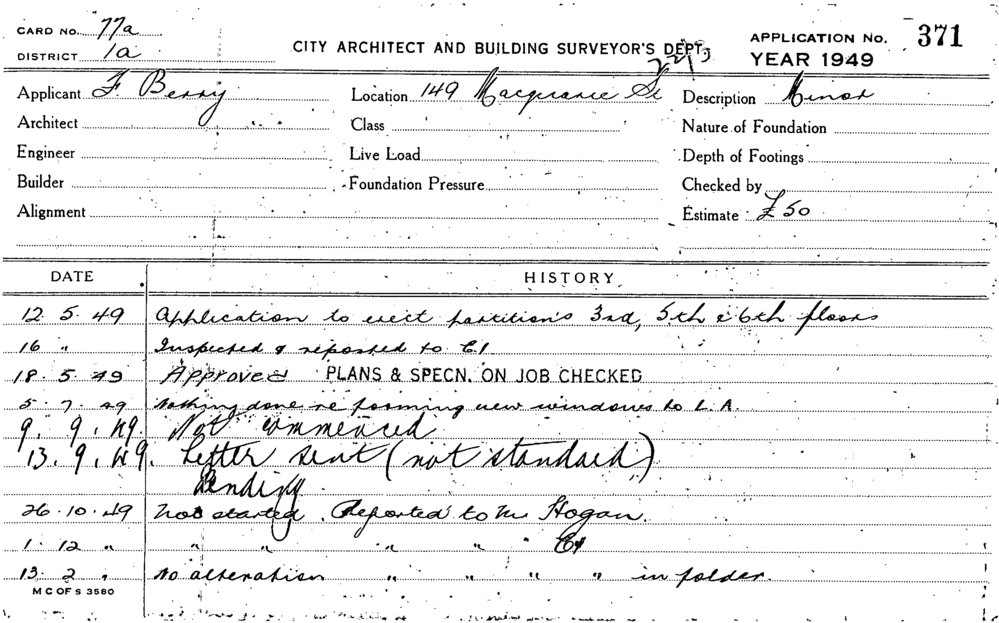 CARD NO. 77a
DISTRICT 1a
CITY ARCHITECT AND BUILDING SURVEYOR'S DEPT.
APPLICATION No. 371
YEAR 1949
Applicant F. Berry
Location 149 Macquarie St
Description Minor
Architect
Class
Nature of Foundation
Engineer
Live Load
Depth of Footings
Builder
Foundation Pressure
Checked by
Alignment
Estimate £50
DATE HISTORY
12. 5. 49 Application to erect partition's 3rd, 5th & 6th floors
16 " Inspected & reported to
18. 5. 49 Approved PLANS & SPECN. ON JOB CHECKED
5. 7. 49 Nothing done re forming new windows to L.A.
9. 9. 49. Not commenced
13. 9. 49. Letter sent (not standard)
Pending
26. 10. 49 Not started. Reported to Mr Hogan.
1. 12 " " " " " "
13. 2 " No alteration " " " " in folder.
M C OF S 3580